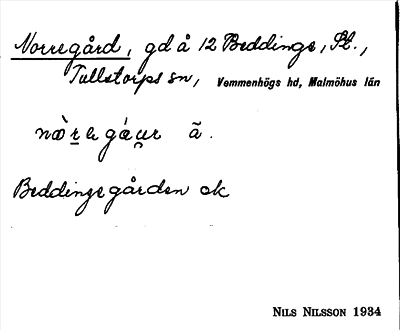 Norregård, gd å 12 Beddinge, St.,
Tullstorps sn, Vemmenhögs hd, Malmöhus län
nœ̀r̲e gáu̯r ã.
Beddingegården ok
NILS NILSSON 1934